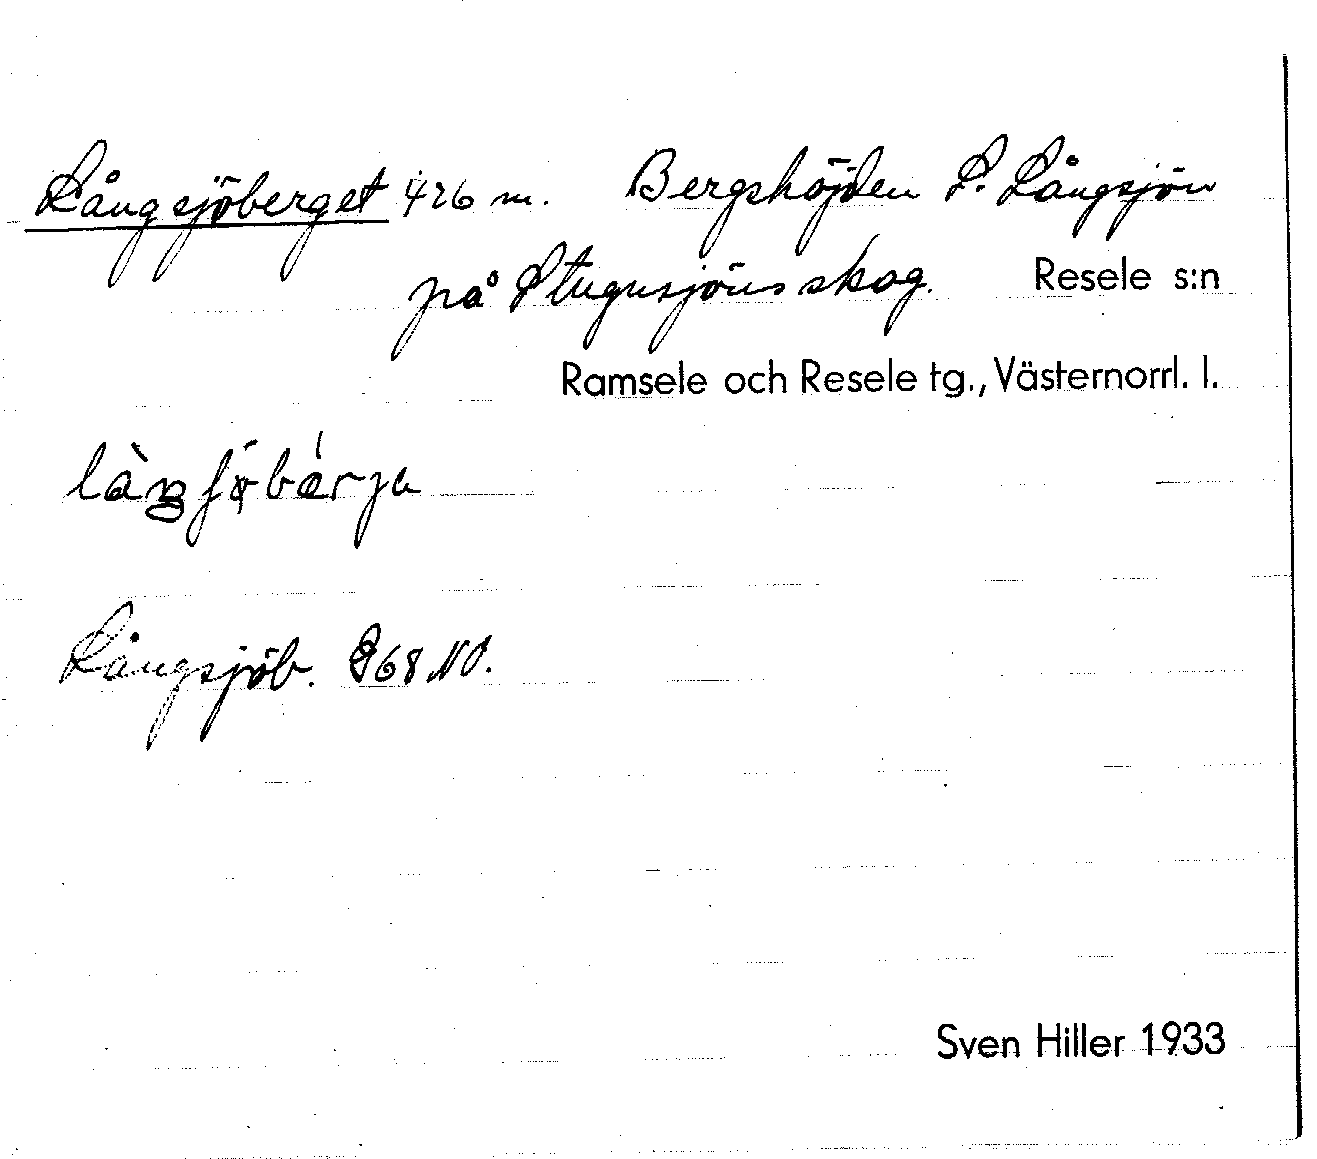 Långsjöberget 426 m. Bergshöjden S. Långsjön
på Stugusjöns skog. Resele s:n
Ramsele och Resele tg., Västernorrl. l.
Långsjöb. G68 NO.
Sven Hiller 1933